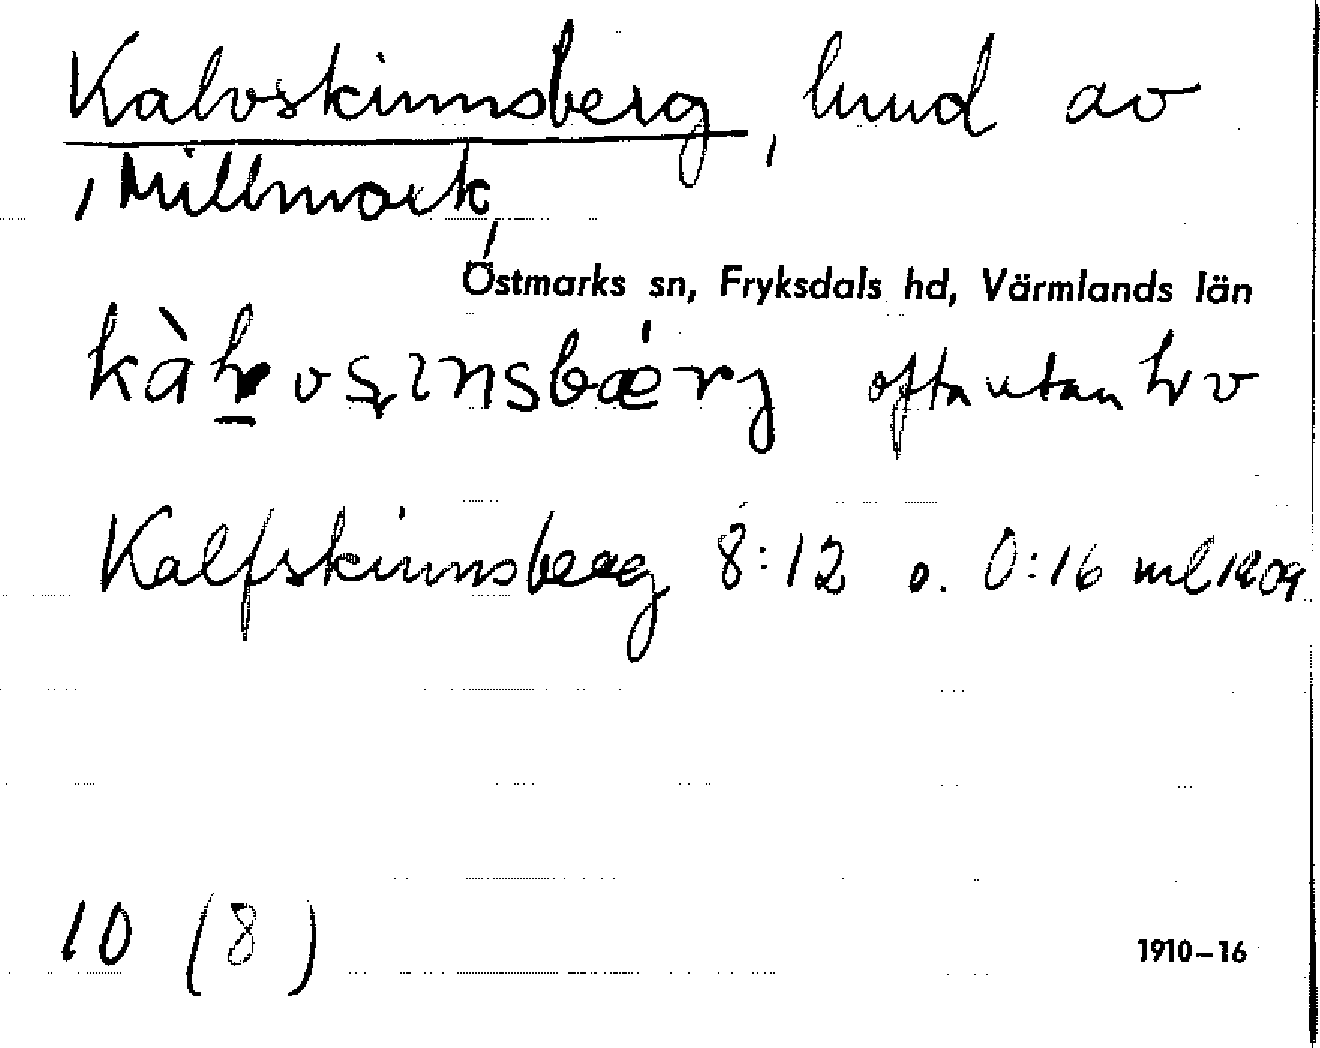 Kalvskinnsberg, lnud av
, Millmark,
Östmarks sn, Fryksdals hd, Värmlands län
ofta utan v
Kalfskinnsberg 8:12 o. 0:16 ml 1909
10 (8)
1910–16